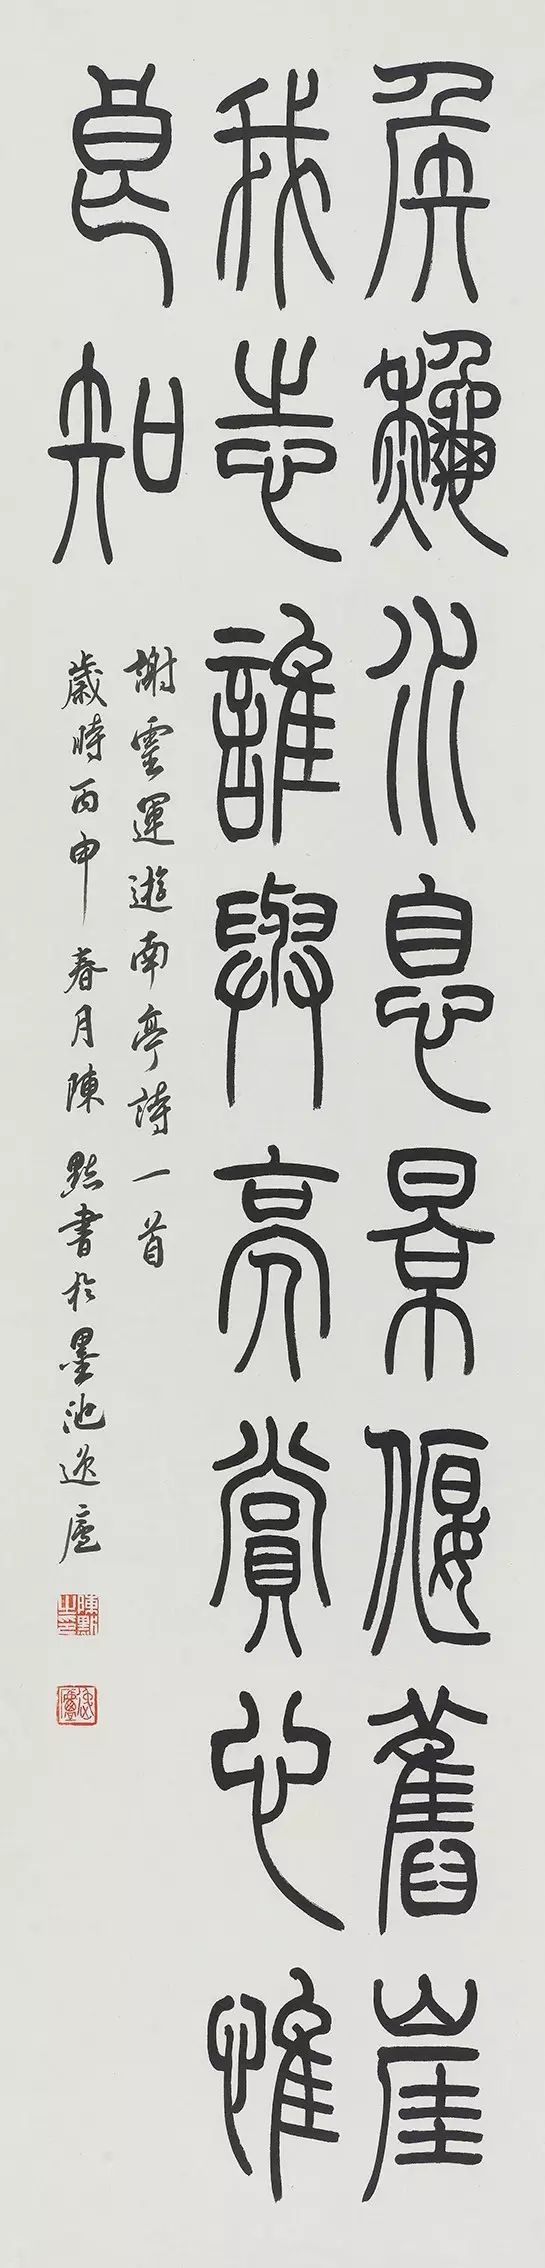 侯秋水息景偃舊崖
我志誰與亮賞心惟
良知
謝靈運遊南亭詩一首
歲時丙申春月陳點書於墨池逸廬
陳點之印
逸廬